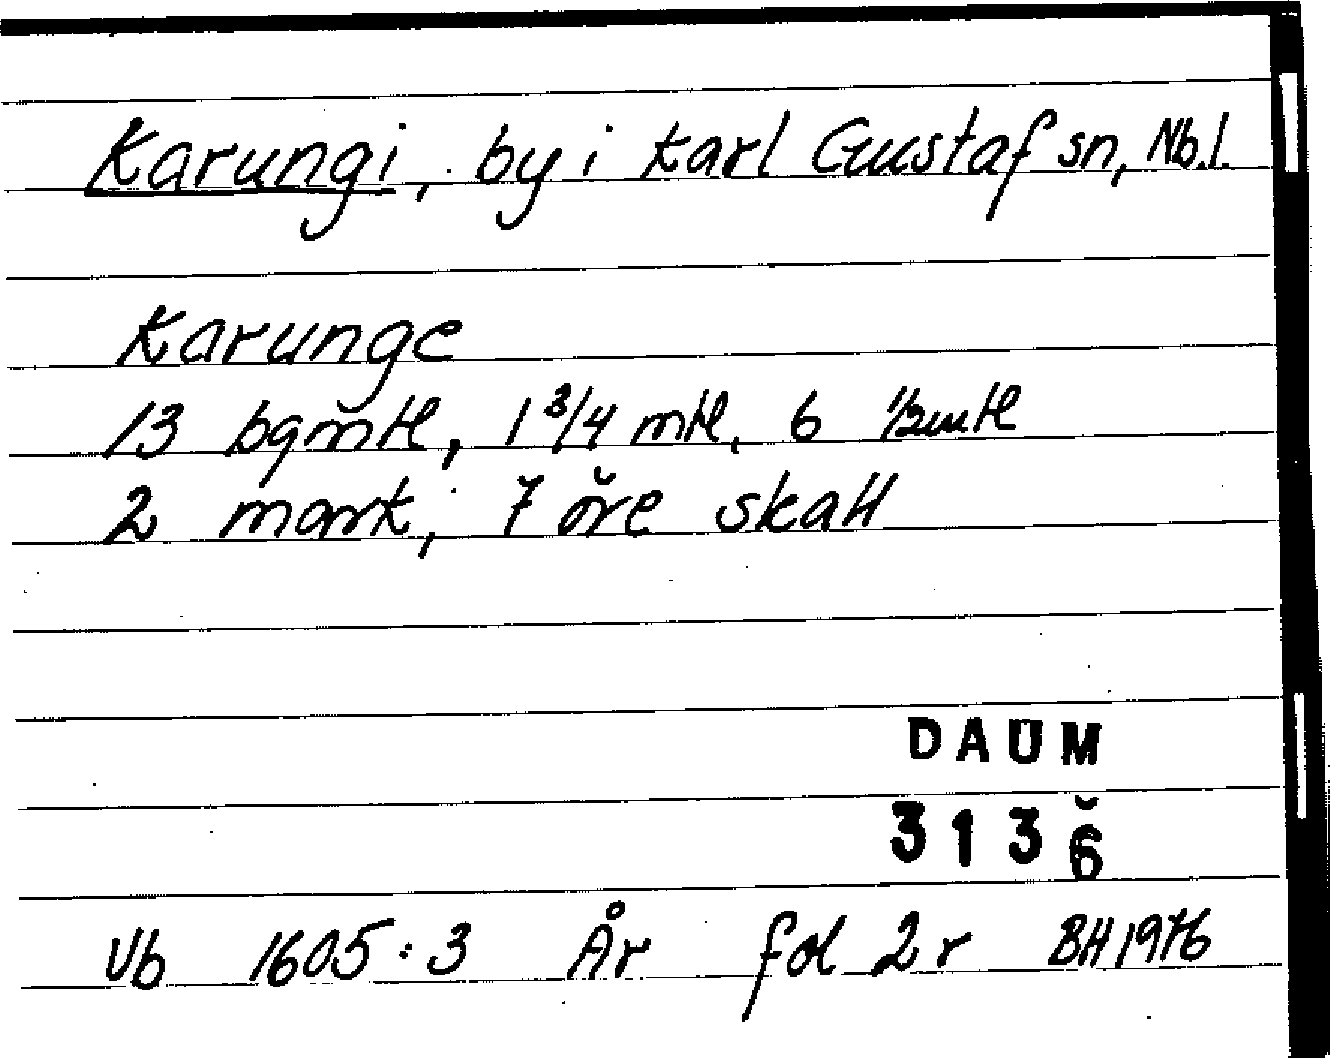 Karungi, by i Karl Gustaf sn, Nb.l.
Karunge
13 bgmtl, 1 3/4 mtl, 6 1/2mtl
2 mark, 7 öre skatt
DAUM
3136
Vb 1605:3 År fol 2r BH1976